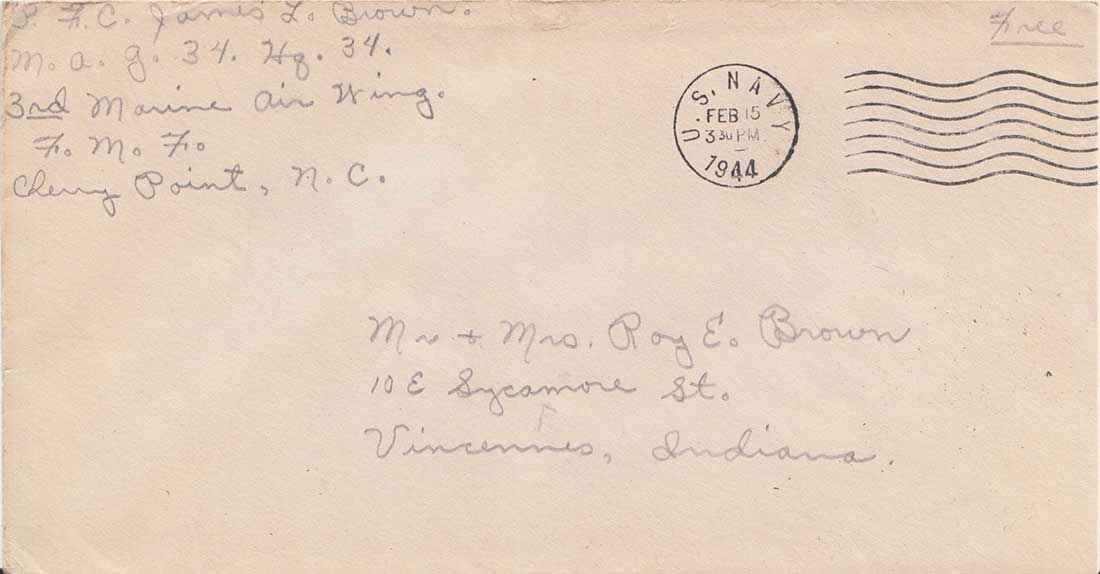 P. F. C. James L. Brown.
M. A. G. 34. Hq. 34.
3rd Marine Air Wing.
F. M. F.
Cherry Point, N. C.
Free
U. S. NAVY
FEB 15
3 30 PM
1944
Mr + Mrs. Roy E. Brown
10 E Sycamore St.
Vincennes, Indiana.